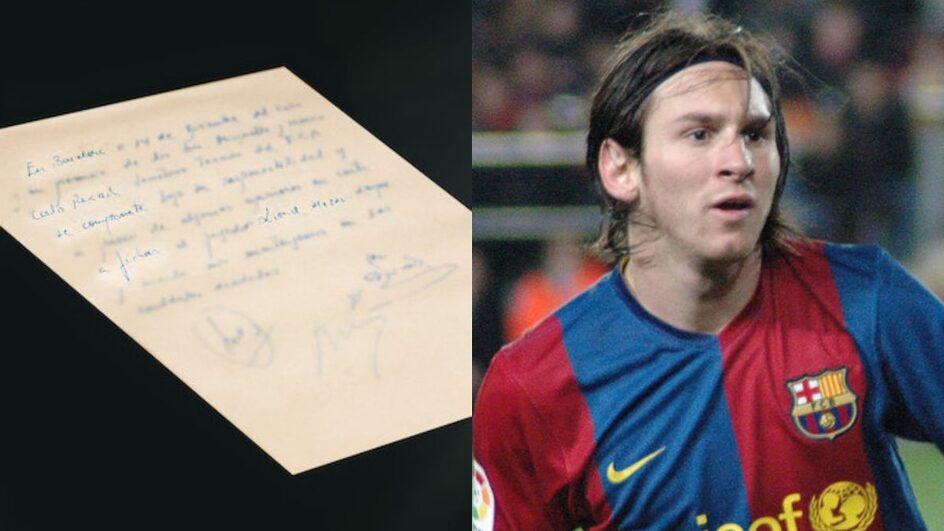 En Barcelona a 14 de Diciembre del
en presencia de los Minguella y Horacio
Carlos Rexach Director Tecnico del F.C.B.
se compromete bajo su responsabilidad y
a pesar de algunas opiniones en contra
a fichar al jugador Lionel Messi siempre
y cuando nos mantengamos en las
cantidades acordadas
FCB
unicef